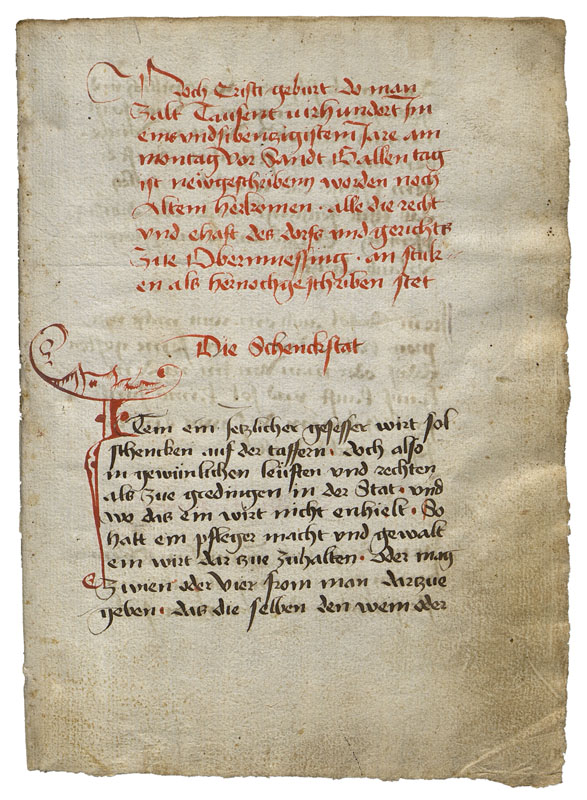 Noch Cristi geburt do man
Zalt Tausent vierhundort Im
eins vnd sibenzigistem Jare am
montag vor Sandt Gallen tag
ist newgeschribenn worden noch
Altem herkomen · alle die recht
vnd ehaft des dorfs vnd gerichts
Zue Obernmessing · an stuk
en als hernochgeschriben stet
Die Schenckstat
Item ein Jetzlicher gesesser wirt sol
schencken auf der taffern · doch also
in gewünlichen leüften vnd rechten
als zue gredingen in der Stat · vnd
wo das ein wirt nicht enhielt · So
hatt ein pfleger macht vnd gewalt
ein wirt dar zue zuhalten · Oder mag
Zwen oder Vier from man darzue
geben · das die selben den wein oder